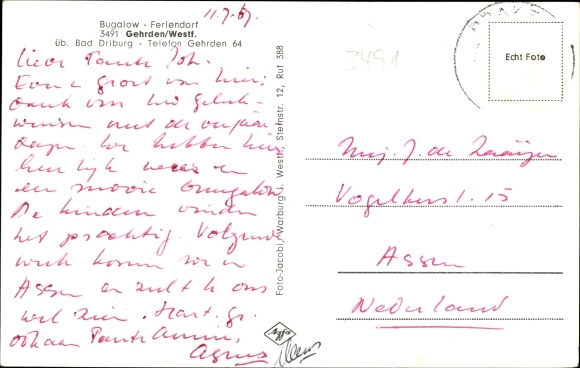 11.7.67.
Bugalow - Feriendorf
3491 Gehrden/Westf.
üb. Bad Driburg - Telefon Gehrden 64
Lieve Tante Joh.
Een groet van hier.
dank van het geluk-
wensen met de verjaar
dagen. Wij hebben hier
heerlijk weer en
een mooie bungalow
De kinderen vinden
het prachtig. Volgende
week komen we in
Assen en zult U ons
wel zien. Hart. gr.
ook aan Tante Annie,
Agnes
Foto-Jacobi, Warburg i. Westf., Sternstr. 12, Ruf 388
3491
Echt Foto
Mej. J. de
Vogelkers 1. 15
Assen
Nederland
Agfa